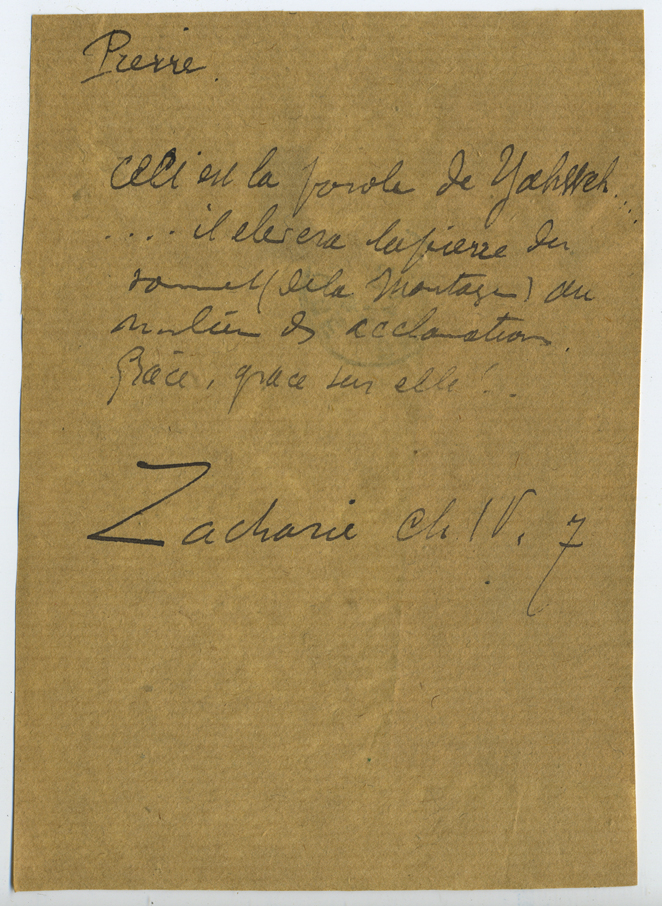 Pierre.
Ceci est la parole de Yahweh....
.... il elevera la pierre du
sommet (de la Montagne) au
milieu des acclamations.
Grâce, grace sur elle!..
Zacharie ch IV. 7